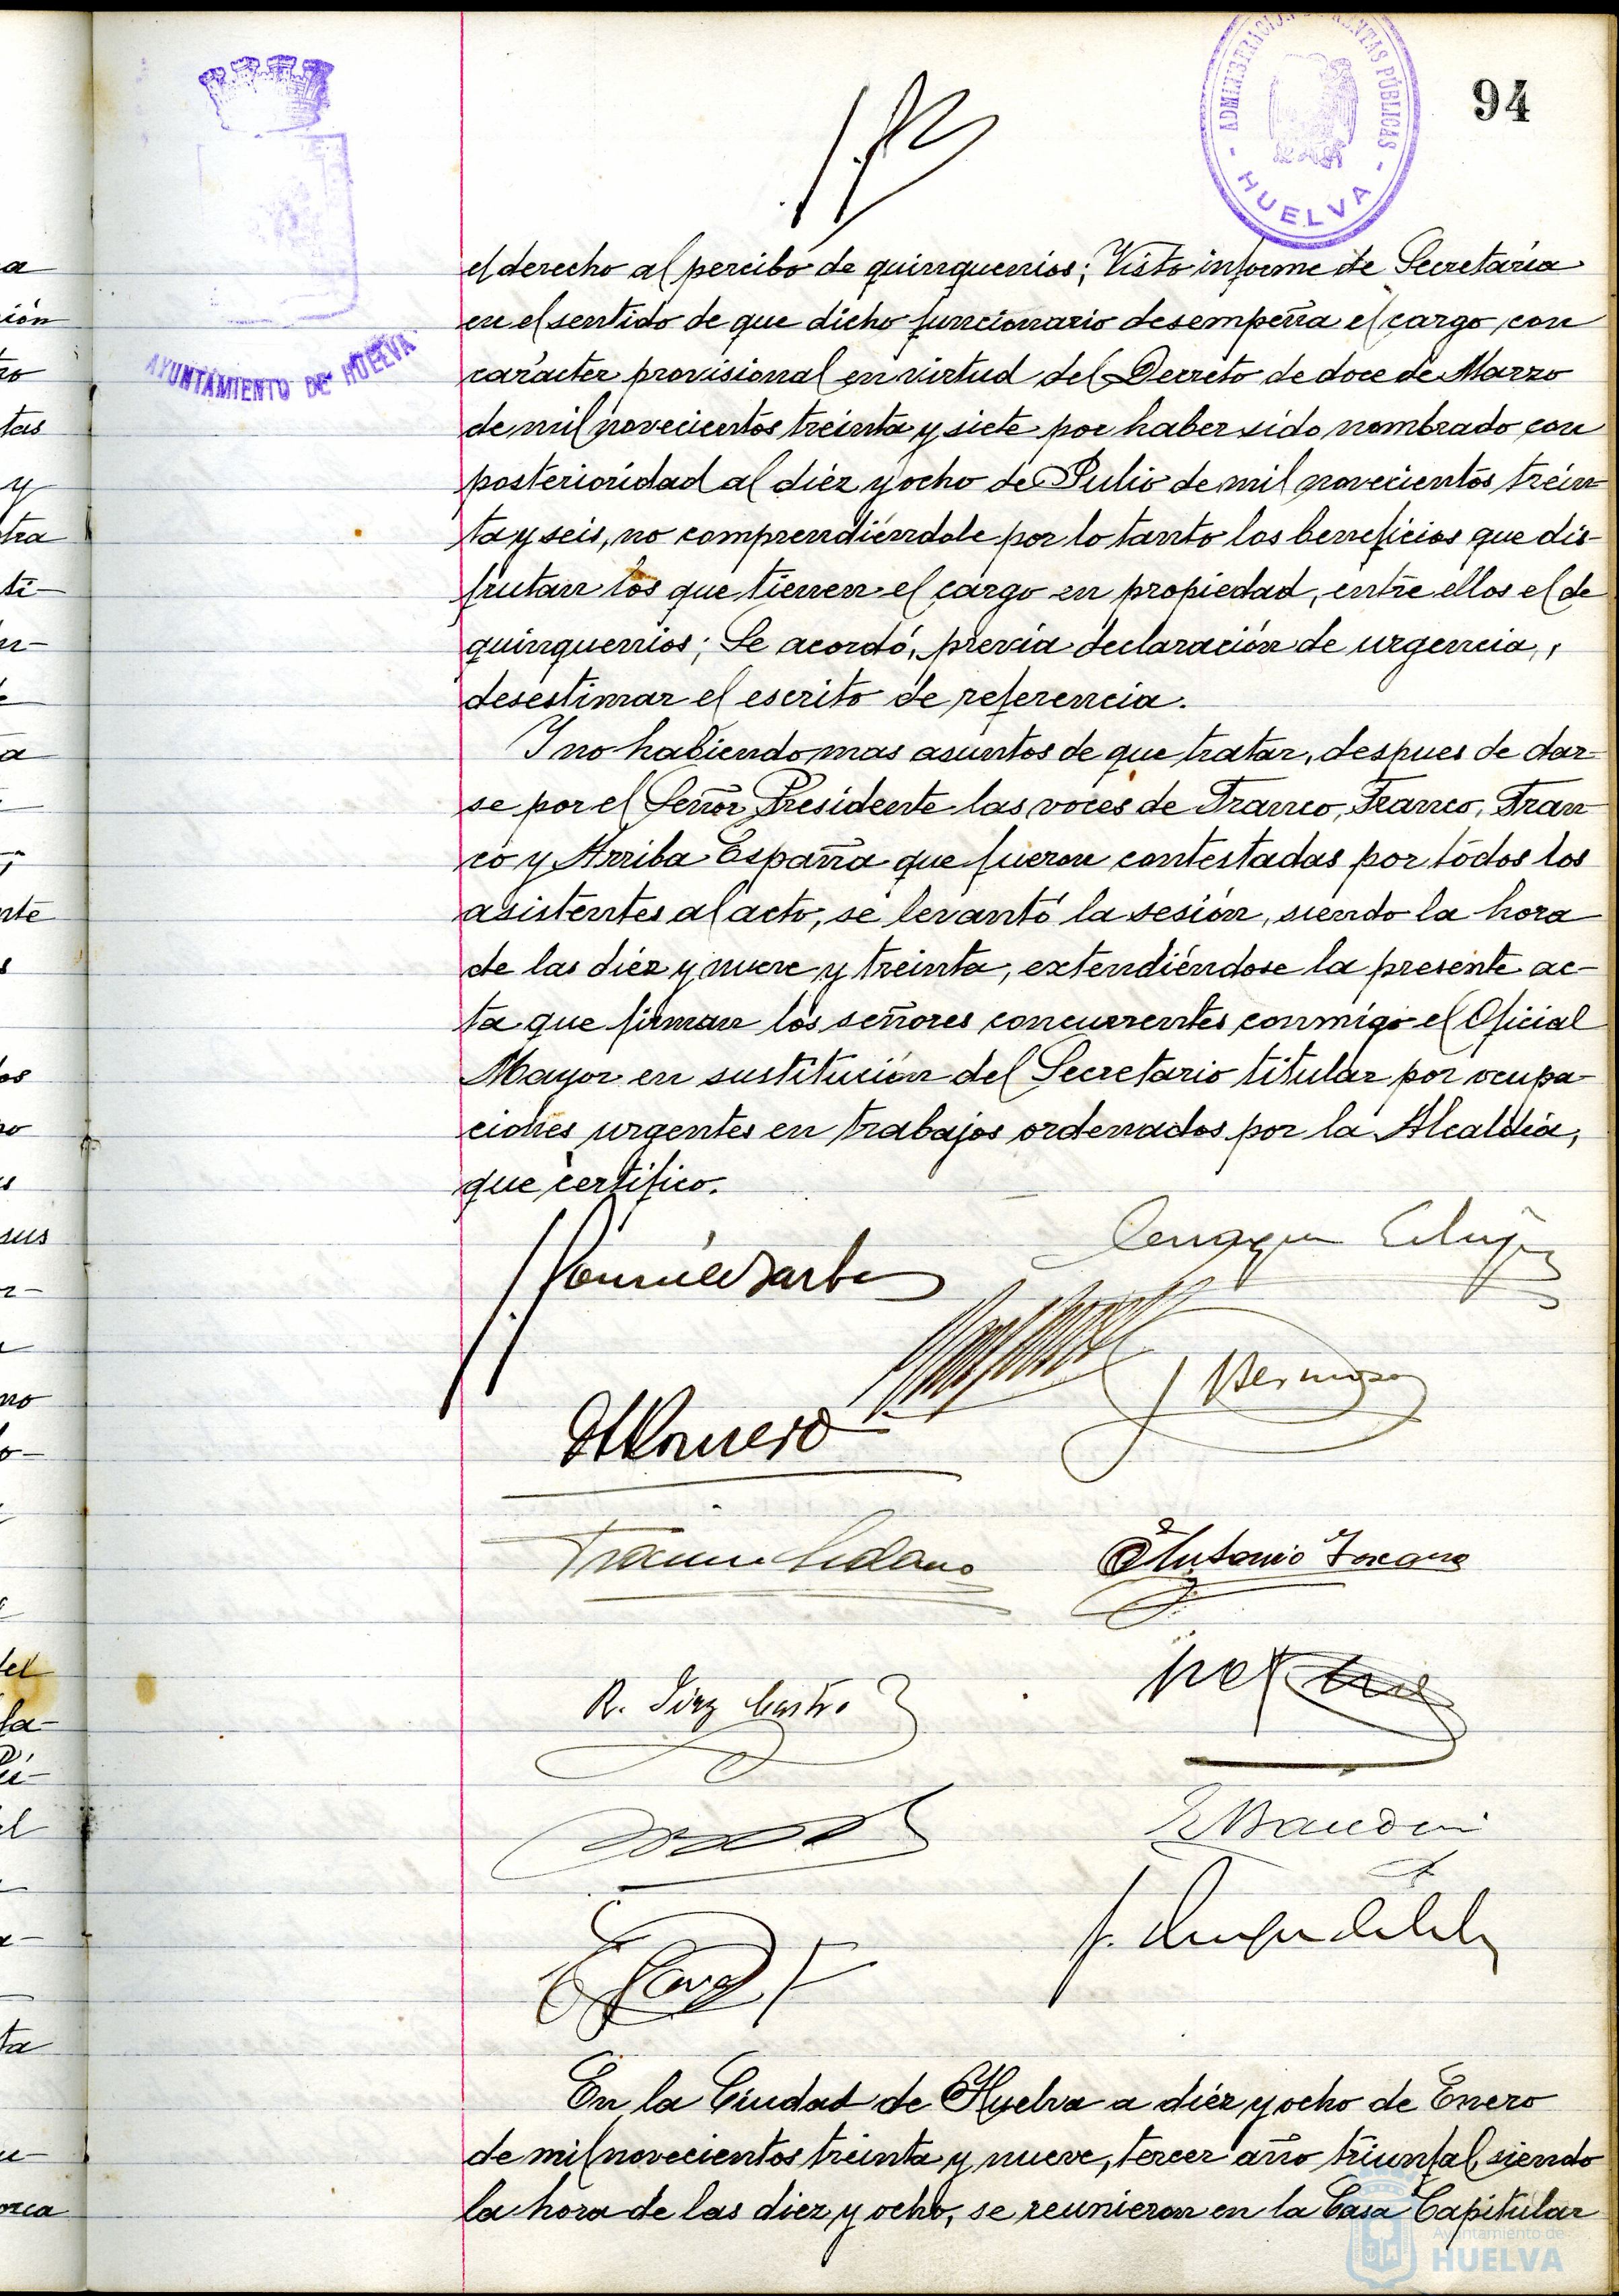 94
ADMINISTRACIÓN DE RENTAS PÚBLICAS
- HUELVA -
AYUNTAMIENTO DE HUELVA
el derecho al percibo de quinquenios; Visto informe de Secretaría
en el sentido de que dicho funcionario desempeña el cargo con
carácter provisional en virtud del Decreto de doce de Marzo
de mil novecientos treinta y siete por haber sido nombrado con
posterioridad al diéz y ocho de Julio de mil novecientos trein-
ta y seis, no comprendiéndole por lo tanto los beneficios que dis-
frutan los que tienen el cargo en propiedad, entre ellos el de
quinquenios; Se acordó, previa declaración de urgencia,
desestimar el escrito de referencia.
Y no habiendo mas asuntos de que tratar, despues de dar-
se por el Señor Presidente las voces de Franco, Franco, Fran
co y Arriba España que fueron contestadas por todos los
asistentes al acto, se levantó la sesión, siendo la hora
de las diéz y nueve y treinta, extendiéndose la presente ac-
ta que firman los señores concurrentes conmigo el Oficial
Mayor en sustitución del Secretario titular por ocupa-
ciones urgentes en trabajos ordenados por la Alcaldía,
que certifico.
J Bermejo
Romero
Antonio Toscano
R. Díaz Castro
En la Ciudad de Huelva a diéz y ocho de Enero
de mil novecientos treinta y nueve, tercer año triunfal, siendo
la hora de las diez y ocho, se reunieron en la Casa Capitular
Ayuntamiento de
HUELVA
a
ión
ro
tas
y
tra
ti-
n-
a
nte
s
os
no
s
sus
r-
no
o-
del
la-
el
ta